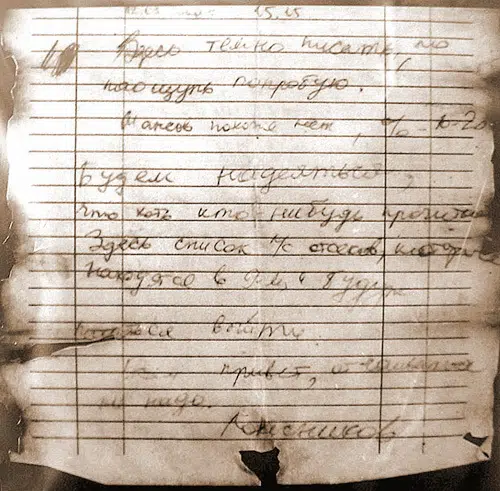 15.15
Здесь темно писать, но
наощупь попробую.
Шансов похоже нет, % 10-20.
Будем надеяться,
что хоть кто-нибудь прочитает
Здесь список л/с отсеков, которые
находятся в 9-м и будут
выйти.
привет, отчаиваться
не надо.
Колесников